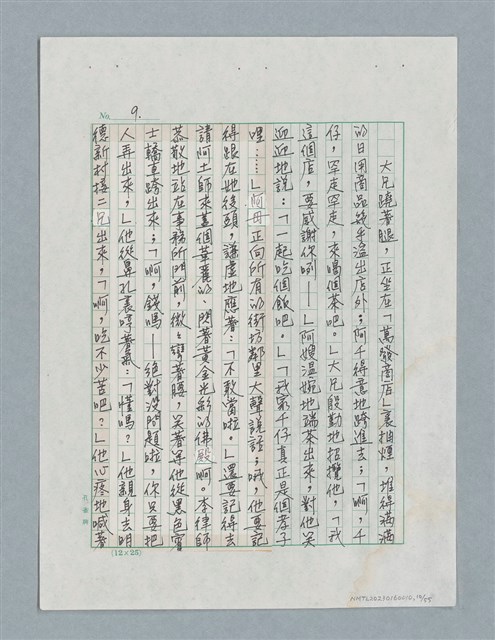 No. 9.
大兄蹺著腿，正坐在「萬發商店」裏抽煙，堆得滿滿
的日用商品幾乎溢出店外；阿千得意地跨進去；「啊，千
仔，罕走罕走，來喝個茶吧。」大兄殷勤地招攬他，「我
這個店，要感謝你咧——」阿嫂溫婉地端茶出來，對他笑
迎迎地說：「一起吃個飯吧。」「我家千仔真正是個孝子
哩……」阿母正向所有的街坊鄰里大聲說話；哦，他要記
得跟在她後頭，謙虛地應著：「不敢當啦。」還要記得去
請阿土師來蓋個華麗的、閃著黃金光彩的佛殿啊。李律師
恭敬地站在事務所門前，微微彎著腰，笑著迎他從黑色賓
士轎車跨出來；「啊，錢嗎——絕對沒問題啦，你只要把
人弄出來，」他從鼻孔裏哼著氣：「懂嗎？」他親身去明
德新村接二兄出來，「啊，吃不少苦吧？」他心疼地喊著
(12×25)
NMTL20230160010, 10/55